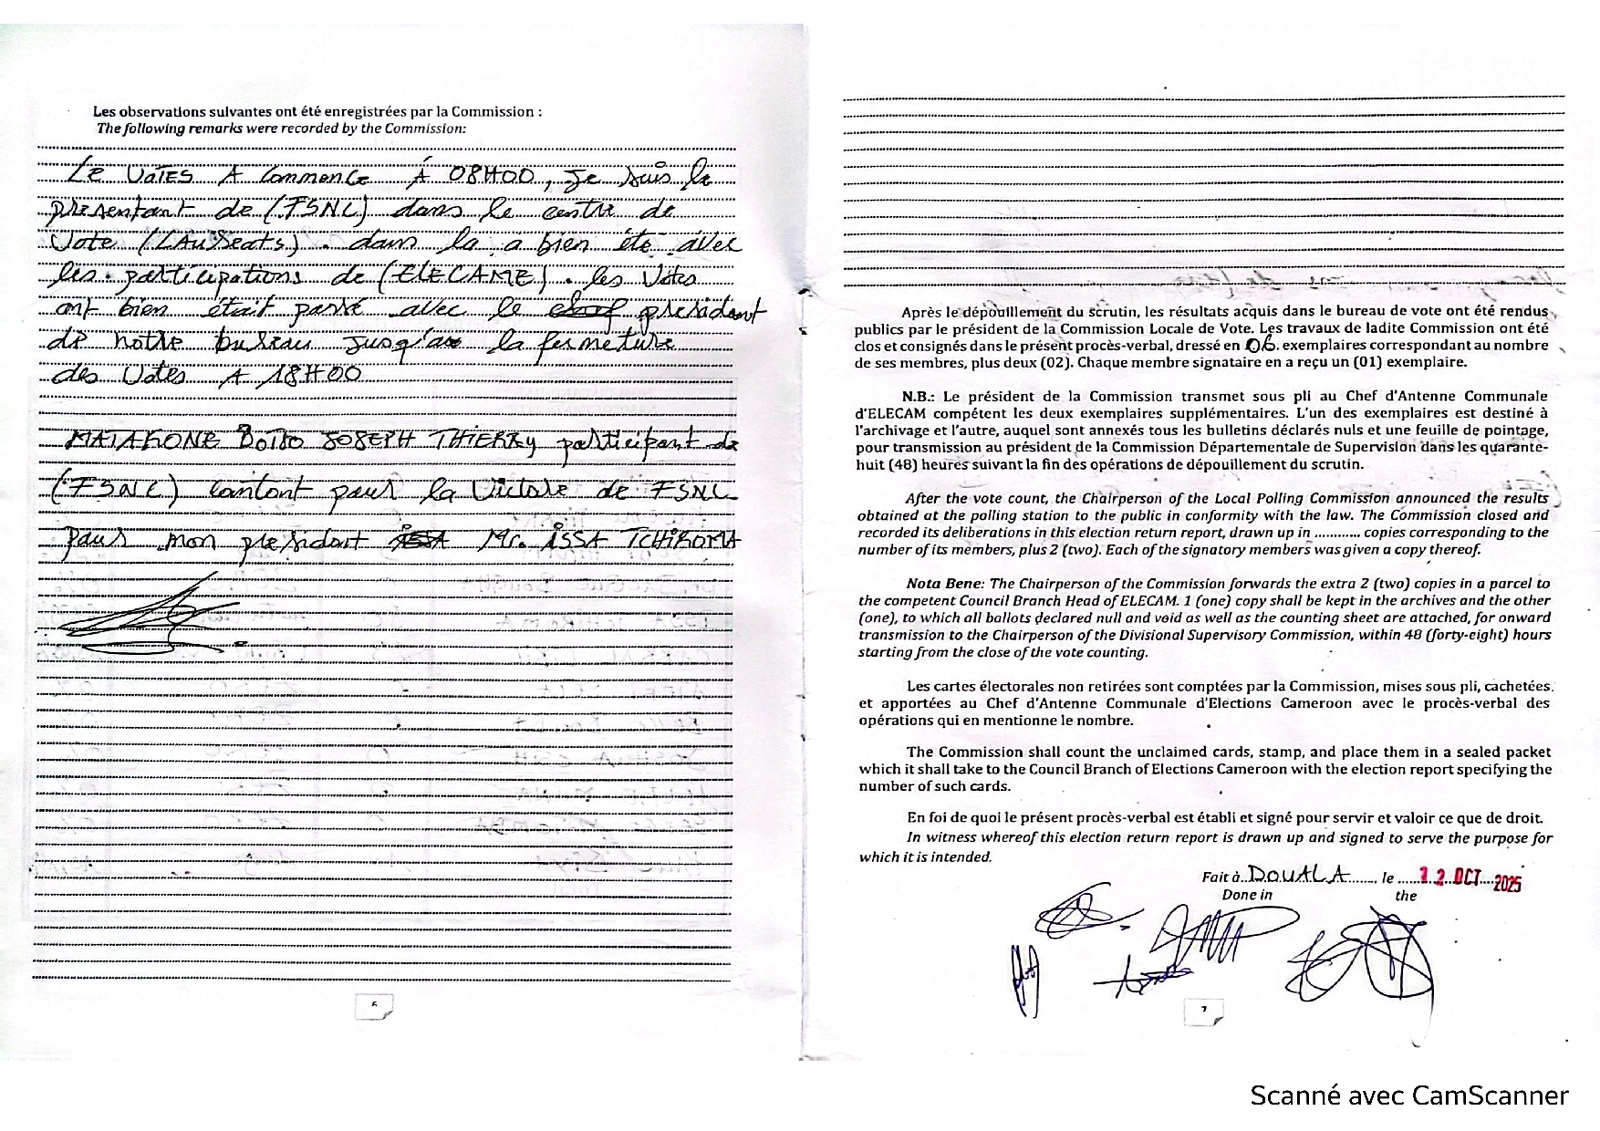 Les observations suivantes ont été enregistrées par la Commission :
The following remarks were recorded by the Commission:
LE VOTES A Commence À 08H00, je suis le
présentant de (FSNC) dans le centre de
Vote (LAUREATS). dans la a bien été avec
les participations de (ELECAME). les Votes
ont bien était passé avec le président
de notre bureau jusqu'a la fermeture
des Votes A 18H00
JOSEPH THIERRY participant de
(FSNC) la Victoire de FSNC
pour mon président Mr. ISSA TCHIROMA
6
Après le dépouillement du scrutin, les résultats acquis dans le bureau de vote ont été rendus
publics par le président de la Commission Locale de Vote. Les travaux de ladite Commission ont été
clos et consignés dans le présent procès-verbal, dressé en 06. exemplaires correspondant au nombre
de ses membres, plus deux (02). Chaque membre signataire en a reçu un (01) exemplaire.
N.B.: Le président de la Commission transmet sous pli au Chef d'Antenne Communale
d'ELECAM compétent les deux exemplaires supplémentaires. L'un des exemplaires est destiné à
l'archivage et l'autre, auquel sont annexés tous les bulletins déclarés nuls et une feuille de pointage,
pour transmission au président de la Commission Départementale de Supervision dans les quarante-
huit (48) heures suivant la fin des opérations de dépouillement du scrutin.
After the vote count, the Chairperson of the Local Polling Commission announced the results
obtained at the polling station to the public in conformity with the law. The Commission closed and
recorded its deliberations in this election return report, drawn up in ............ copies corresponding to the
number of its members, plus 2 (two). Each of the signatory members was given a copy thereof.
Nota Bene: The Chairperson of the Commission forwards the extra 2 (two) copies in a parcel to
the competent Council Branch Head of ELECAM. 1 (one) copy shall be kept in the archives and the other
(one), to which all ballots declared null and void as well as the counting sheet are attached, for onward
transmission to the Chairperson of the Divisional Supervisory Commission, within 48 (forty-eight) hours
starting from the close of the vote counting.
Les cartes électorales non retirées sont comptées par la Commission, mises sous pli, cachetées,
et apportées au Chef d'Antenne Communale d'Elections Cameroon avec le procès-verbal des
opérations qui en mentionne le nombre.
The Commission shall count the unclaimed cards, stamp, and place them in a sealed packet
which it shall take to the Council Branch of Elections Cameroon with the election report specifying the
number of such cards.
En foi de quoi le présent procès-verbal est établi et signé pour servir et valoir ce que de droit.
In witness whereof this election return report is drawn up and signed to serve the purpose for
which it is intended.
Fait à DOUALA le 12 OCT 2025
Done in the
7
Scanné avec CamScanner